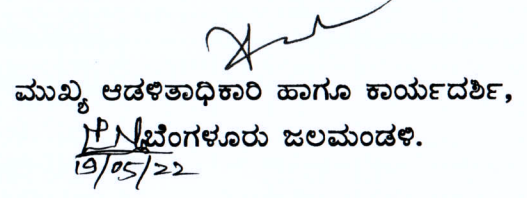 ಮುಖ್ಯ ಆಡಳಿತಾಧಿಕಾರಿ ಹಾಗೂ ಕಾರ್ಯದರ್ಶಿ,
ಬೆಂಗಳೂರು ಜಲಮಂಡಳಿ.
19/05/22